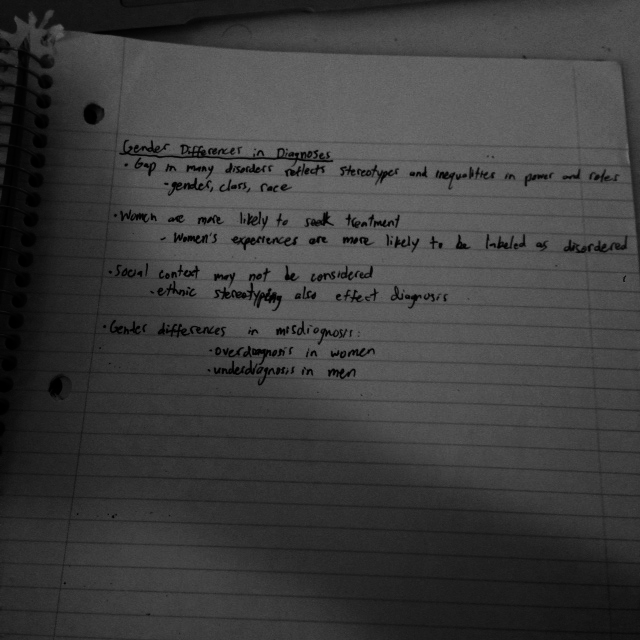 Gender Differences in Diagnoses
• Gap in many disorders reflects stereotypes and inequalities in power and roles
- gender, class, race
• Women are more likely to seek treatment
- Women's experiences are more likely to be labeled as disordered
• Social context may not be considered
- ethnic stereotyping also effect diagnosis
• Gender differences in misdiagnosis:
• overdiagnosis in women
• underdiagnosis in men